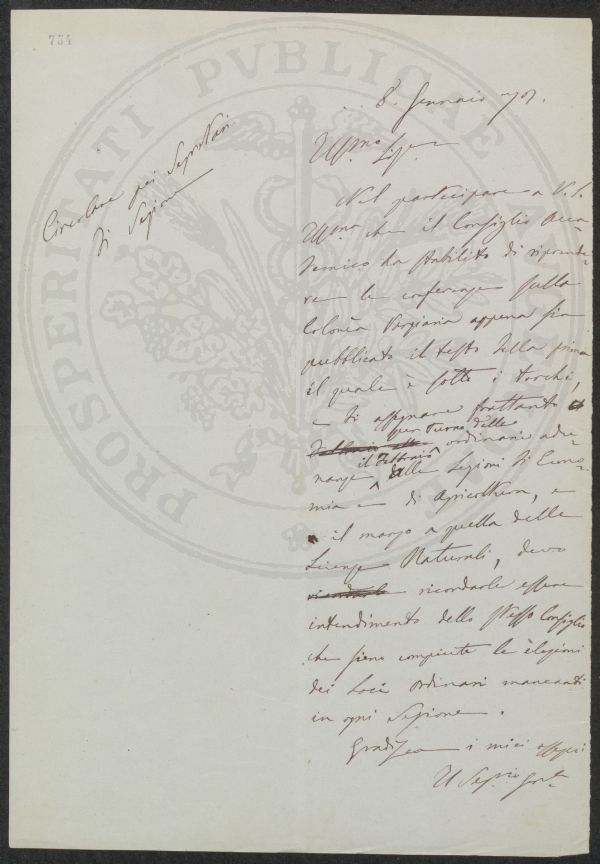 754
8. Gennaio
Circolare pei Segretari
di Sezione
Nel partecipare a V. S.
che il Consiglio Acca-
demico ha stabilito di riprende-
re le conferenze sulla
Colonìa appena sia
pubblicato il testo della prima
il quale è sotto i torchi,
e di assegnare frattanto
per turno delle
ordinarie adu-
il Febbraio
nanze alle Sezioni di Econo-
mia e di Agricoltura, e
il marzo a quella delle
Scienze Naturali, devo
ricordarle essere
intendimento dello stesso Consiglio
che sieno compiute le elezioni
dei Soci ordinari mancanti
in ogni Sezione.
Gradisca i miei ossequi
Il Segrio
PROSPERITATI PVBLICAE